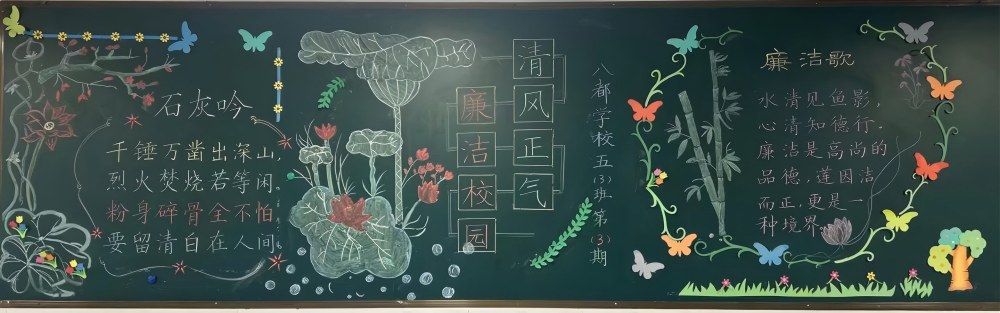 石灰吟
千锤万凿出深山，
烈火焚烧若等闲。
粉身碎骨全不怕，
要留清白在人间
清风正气
廉洁校园
八都学校五(3)班第(3)期
廉洁歌
水清见鱼影，
心清知德行.
廉洁是高尚的
品德，莲因洁
而正，更是一
种境界